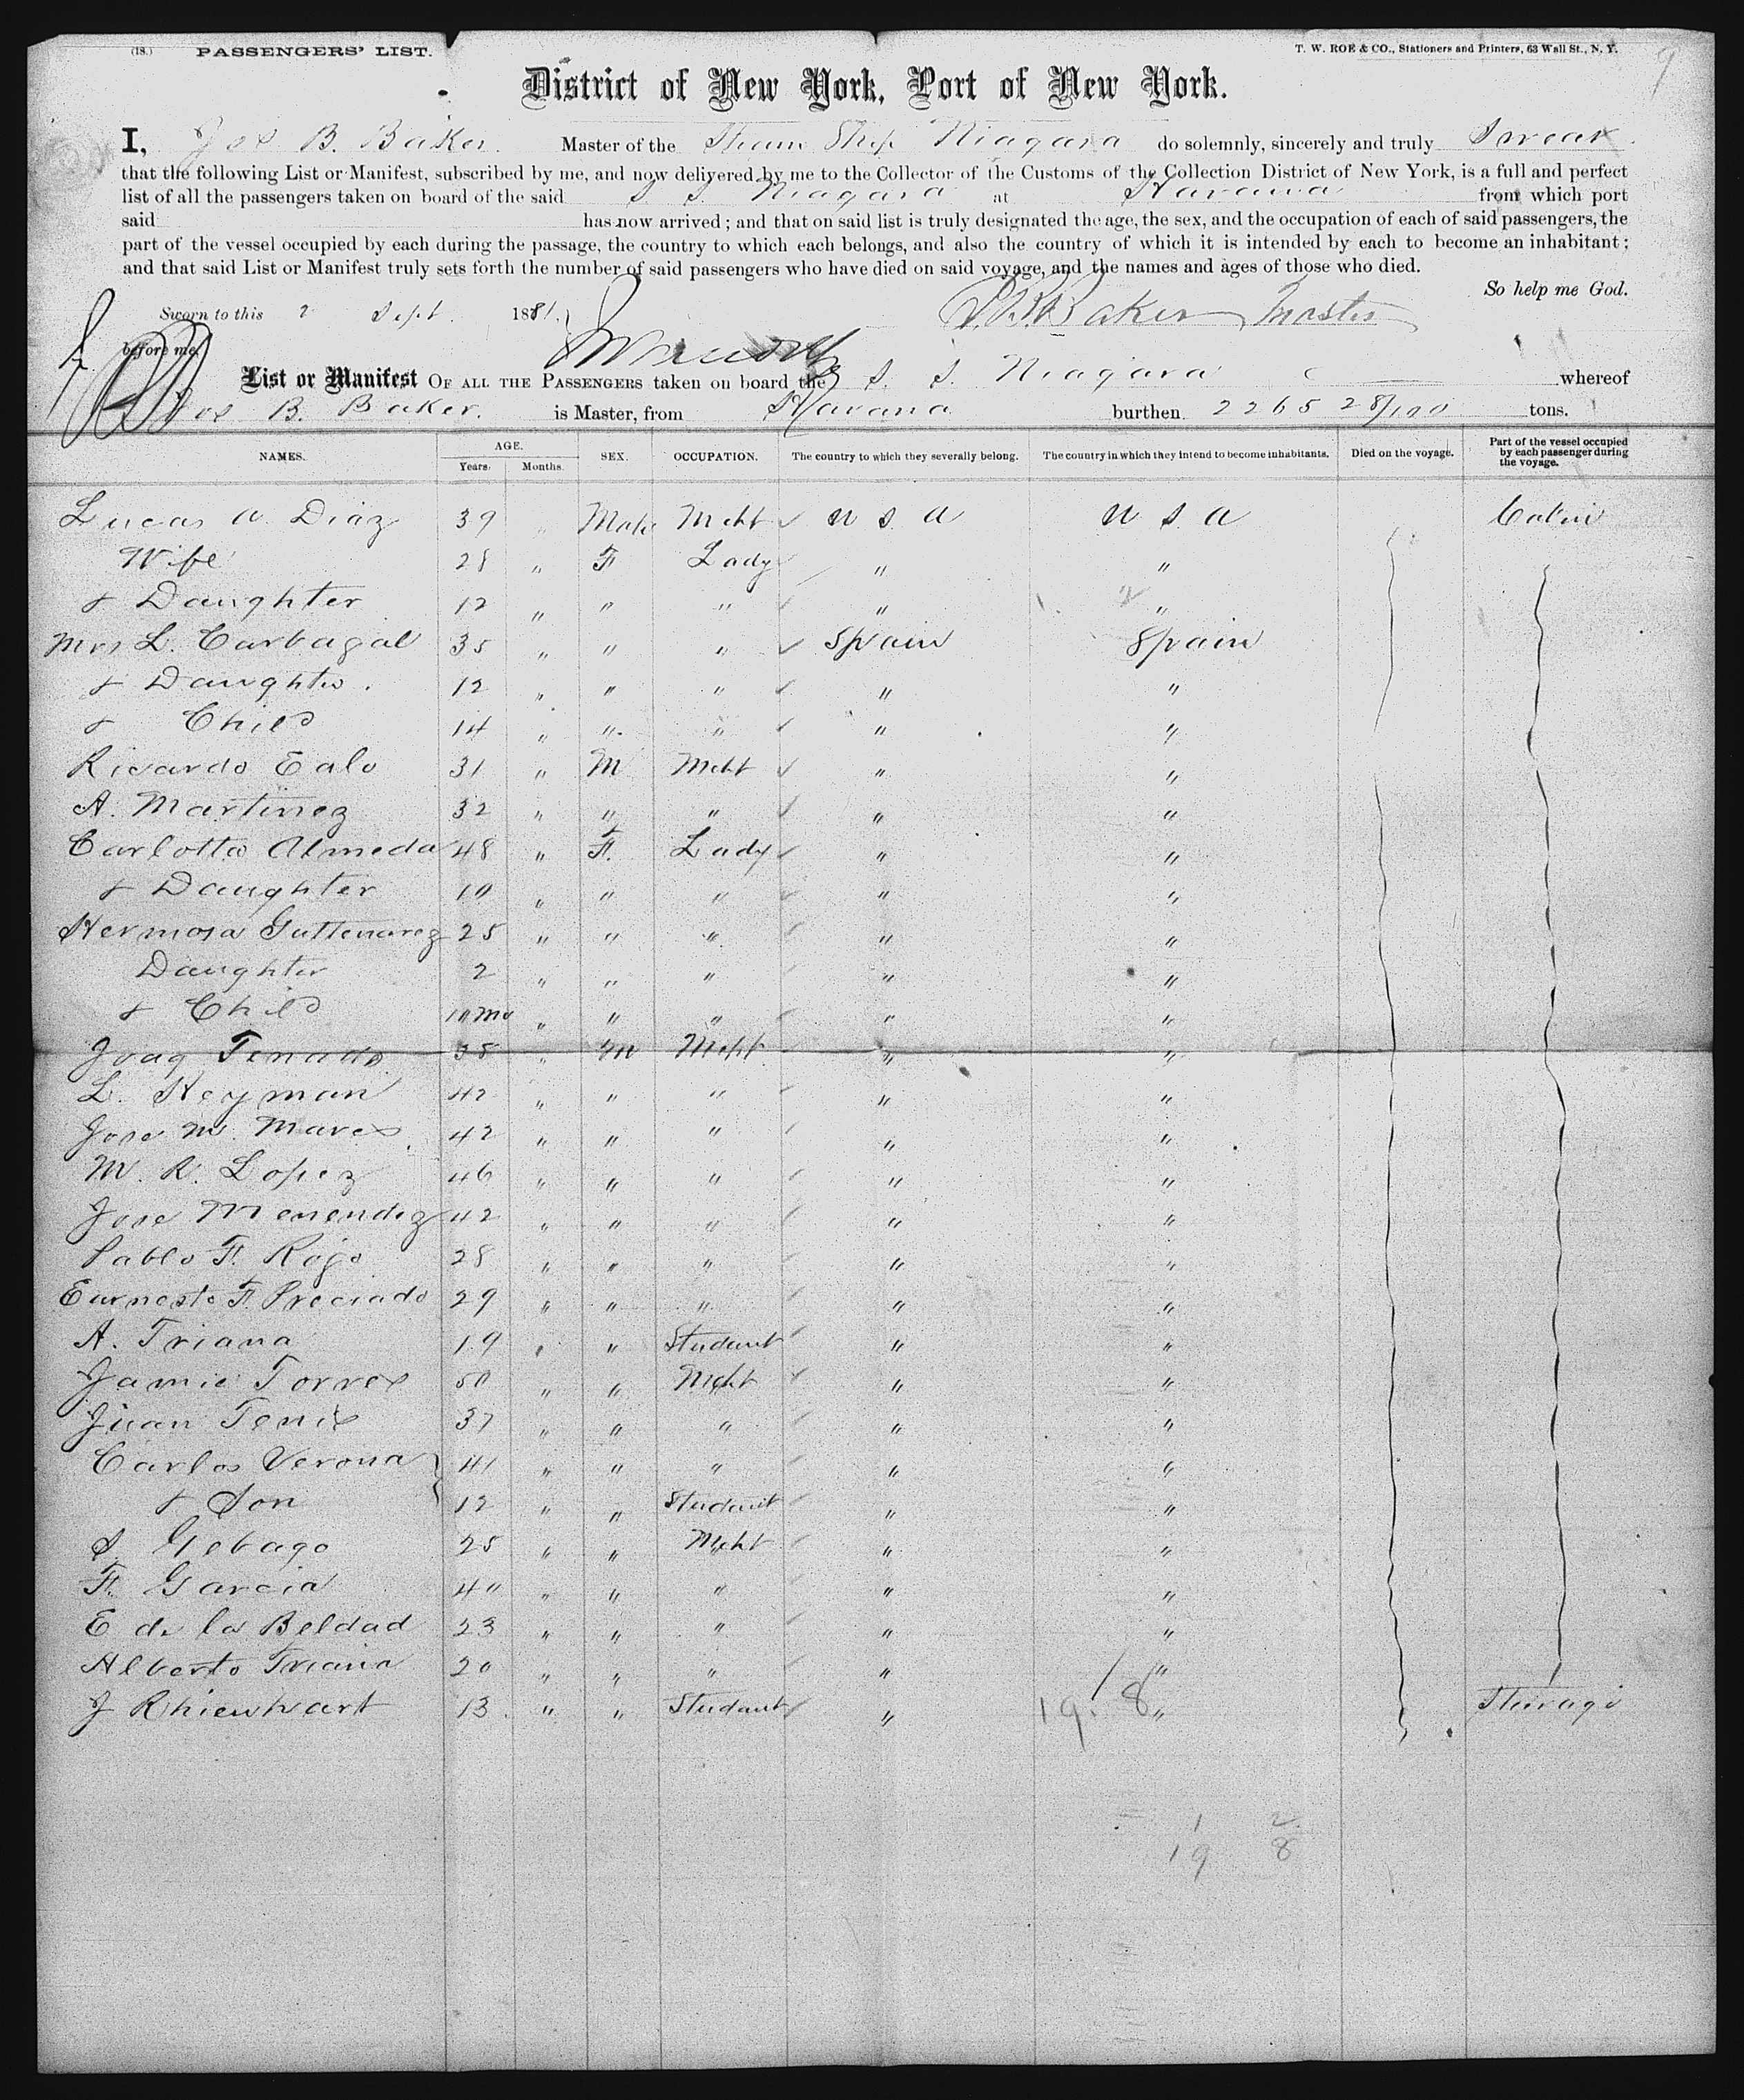 (18.) PASSENGERS' LIST. T. W. ROE & CO., Stationers and Printers, 63 Wall St., N. Y. 9
District of New York, Port of New York.
I, Jos B. Baker Master of the Steam Ship Niagara do solemnly, sincerely and truly Swear
that the following List or Manifest, subscribed by me, and now delivered by me to the Collector of the Customs of the Collection District of New York, is a full and perfect
list of all the passengers taken on board of the said S. S. Niagara at Havana from which port
said has now arrived; and that on said list is truly designated the age, the sex, and the occupation of each of said passengers, the
part of the vessel occupied by each during the passage, the country to which each belongs, and also the country of which it is intended by each to become an inhabitant;
and that said List or Manifest truly sets forth the number of said passengers who have died on said voyage, and the names and ages of those who died.
So help me God.
Sworn to this 2 Sept 1881. J. B. Baker Master
before me
List or Manifest OF ALL THE PASSENGERS taken on board the S. S. Niagara whereof
Jos B. Baker. is Master, from Havana burthen 2265 28/100 tons.
NAMES. AGE. Years. Months. SEX. OCCUPATION. The country to which they severally belong. The country in which they intend to become inhabitants. Died on the voyage. Part of the vessel occupied by each passenger during the voyage.
Lucas A. Diaz 39 " Male Mcht U S A U S A Cabin
Wife 28 " F Lady " "
& Daughter 12 " " " " "
Mrs L. Carbagal 35 " " " Spain Spain
& Daughter. 12 " " " " "
& Child 14 " " " " "
Ricardo Ealo 31 " M Mcht " "
A. Martinez 32 " " " " "
Carlotta Almeda 48 " F. Lady " "
& Daughter 10 " " " " "
Hermosa Guttenarez 25 " " " " "
Daughter 2 " " " " "
& Child 10 mo " " " " "
Joaq Tenado 38 " M Mcht " "
L. Heyman 42 " " " " "
Jose M. Mares 42 " " " " "
M. R. Lopez 46 " " " " "
Jose Menendez 42 " " " " "
Pablo F. Rojo 28 " " " " "
Earnesto F. Preciado 29 " " " " "
A. Triana 19 " " Student " "
Jamie Torres 50 " " Mcht " "
Juan Tenis 37 " " " " "
Carlos Verona 41 " " " " "
& Son 12 " " Student " "
S Gebago 25 " " Mcht " "
F. Garcia 40 " " " " "
E de la Beldad 23 " " " " "
Alberto Triana 20 " " " " "
J Rhienhart 13 " " Student " 19. 8 " Steerage
1 2
19 8